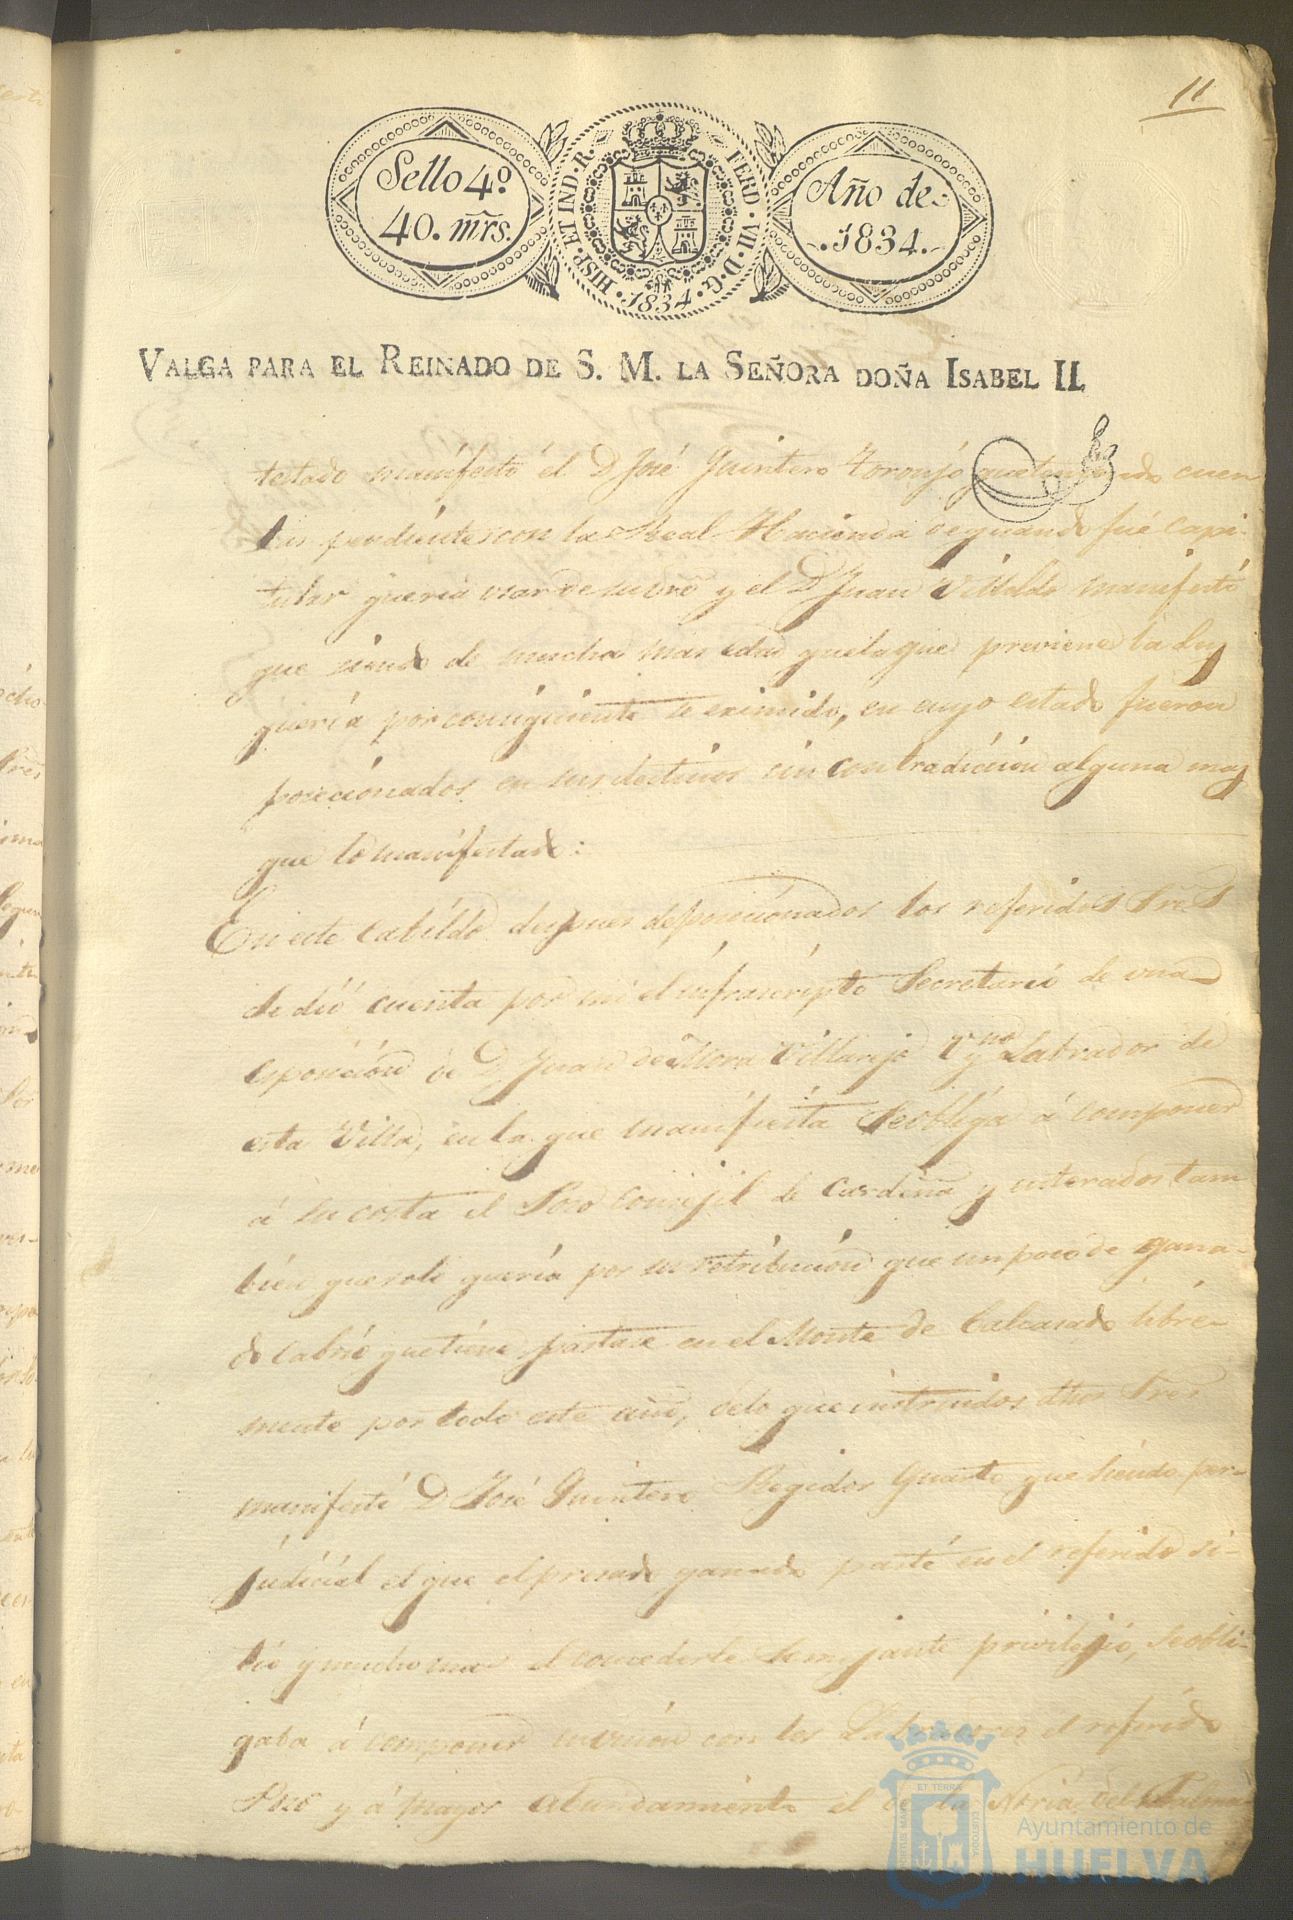 11
Sello 4º
40. mrs.
HISP. ET IND. R.
FERD. VII. D. G.
1834
Año de
1834.
VALGA PARA EL REINADO DE S. M. LA SEÑORA DOÑA ISABEL II.
testado manifestó el D José Quintero Toronjo que teniendo cuen
tas pendientes con la Real Hacienda de quando fué Capi-
tular queria usar de su dro y el D Juan Villalde manifestó
que siendo de mucha mas edad que la que previene la Ley
quería por consiguiente le eximido, en cuyo estado fueron
posecionados en sus destinos sin contradicion alguna mas
que lo manifestado:
En este Cabildo despues de posecionados los referidos Sres
se dió cuenta por mi el infrascripto Secretario de una
esposicion de D Juan de Mora Villarejo Vno y Labrador de
esta Villa, en la que manifiesta se obliga á componer
á su costa el Poso Concejil de Cardeña y enterados tam
bien que solo queria por su retribucion que un poco de gana-
do Cabrio que tiene pastase en el Monte de Calcasado libre-
mente por todo este año, de lo que instruidos dhos Sres
manifestó D José Quintero Regidor Quarto que siendo per-
judicial el que el presado ganado pasté en el referido si-
tio y mucho mas el concederle semejante privilegio, se obli-
gaba á componer en union con los Labradores el referido
Poso y á mayor abundamiento el de la Noria del
ET TERRÆ
CUSTODIA
Ayuntamiento de
HUELVA